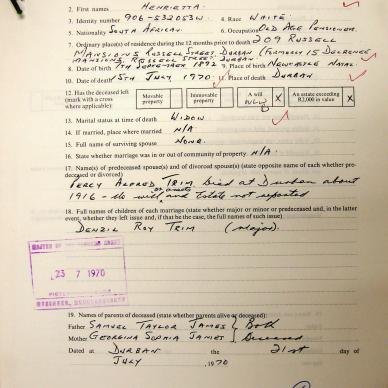 2. First names HENRIETTA.
3. Identity number 906-532053W 4. Race WHITE
5. Nationality SOUTH AFRICAN. 6. Occupation OLD AGE PENSIONER
7. Ordinary place(s) of residence during the 12 months prior to death 209 RUSSELL
MANSIONS RUSSELL STREET, DURBAN (FORMERLY 15
MANSIONS, RUSSELL STREET, DURBAN
8. Date of birth 7TH SEPTEMBER 1892 9. Place of birth NEWCASTLE NATAL
10. Date of death 15TH JULY 1970. 11. Place of death DURBAN
12. Has the deceased left (mark with a cross where applicable)
Movable property
Immovable property
A will X
An estate exceeding R2,000 in value X
13. Marital status at time of death WIDOW
14. If married, place where married N/A
15. Full name of surviving spouse NONE.
16. State whether marriage was in or out of community of property N/A.
17. Name(s) of predeceased spouse(s) and of divorced spouse(s) (state opposite name of each whether predeceased or divorced)
PERCY ALFRED TRIM Died at Durban about
1916 - No will or assets and Estate not reported
18. Full names of children of each marriage (state whether major or minor or predeceased and, in the latter event, whether they left issue and, if that be the case, the full names of such issue).
DENZIL ROY TRIM (Major).
23 7 1970
19. Names of parents of deceased (state whether parents alive or deceased):
Father SAMUEL TAYLOR JAMES } Both
Mother GEORGINA SOPHIA JAMES } Deceased
Dated at DURBAN the 21st day of
JULY, 1970